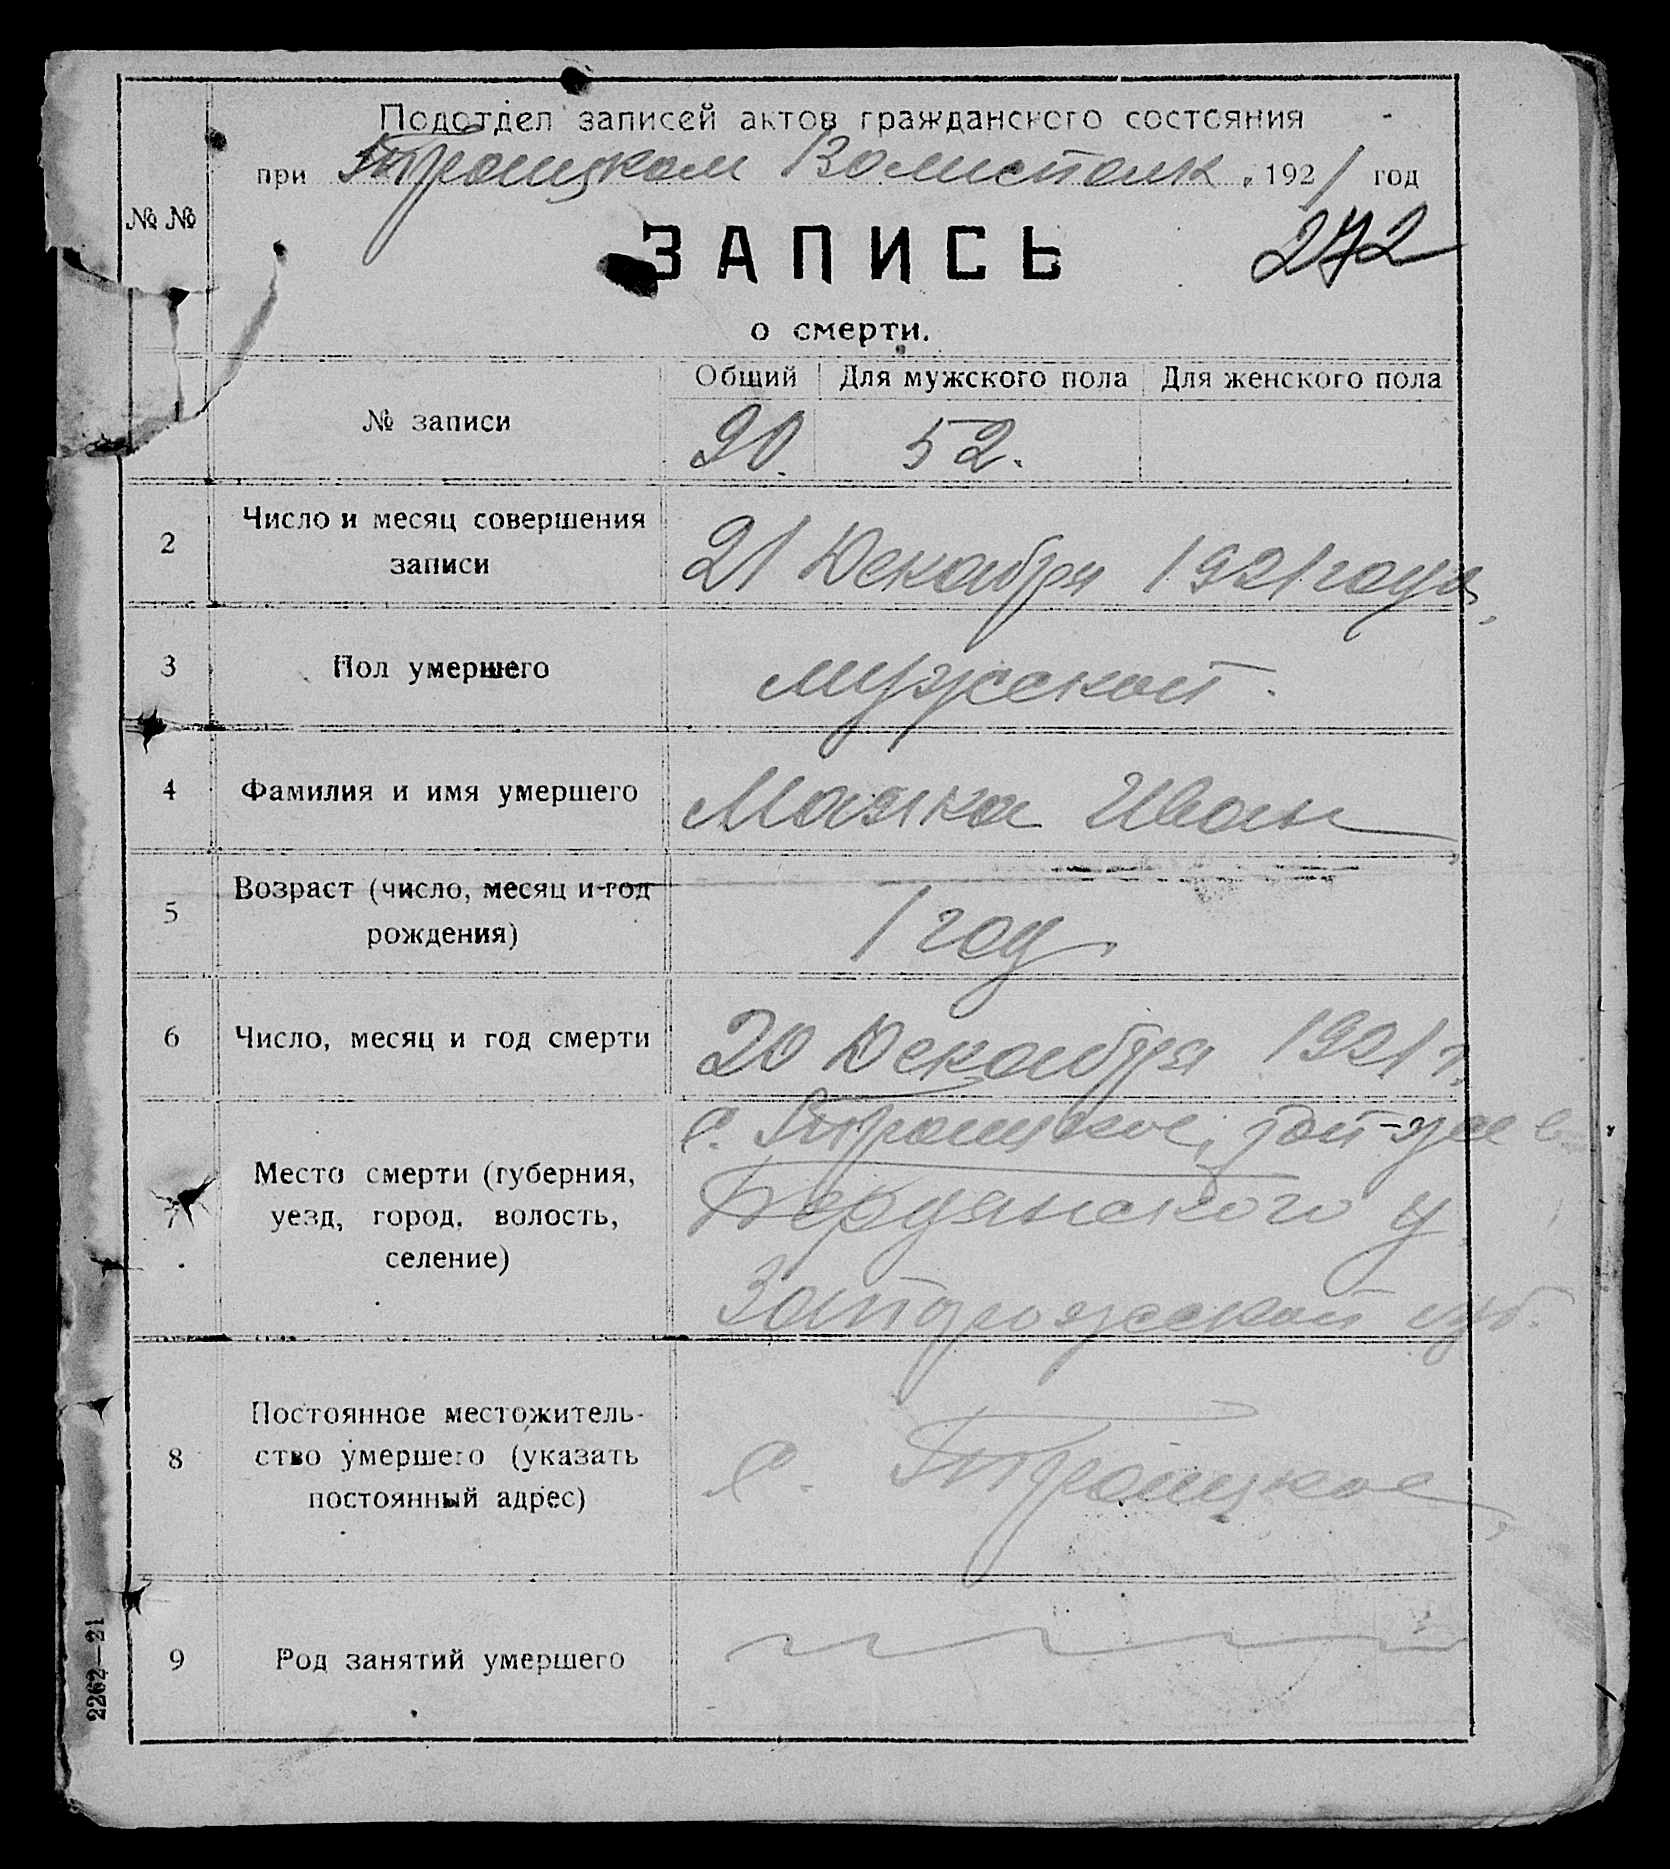 Подотдел записей актов гражданского состояния
при Троицком Волисполк. 1921 год
№ №
272
ЗАПИСЬ
о смерти.
Общий Для мужского пола Для женского пола
1 № записи 90. 52.
2 Число и месяц совершения
записи
21 Декабря 1921 года,
3 Пол умершего мужской.
4 Фамилия и имя умершего Маяка Иван
5 Возраст (число, месяц и год
рождения)
1 год
6 Число, месяц и год смерти 20 Декабря 1921 г.
с. Троицкое,
Место смерти (губерния,
уезд, город, волость,
селение)
Бердянского у
Запорожской губ.
8 Постоянное местожитель-
ство умершего (указать
постоянный адрес)
с. Троицкое,
9 Род занятий умершего
2262—21